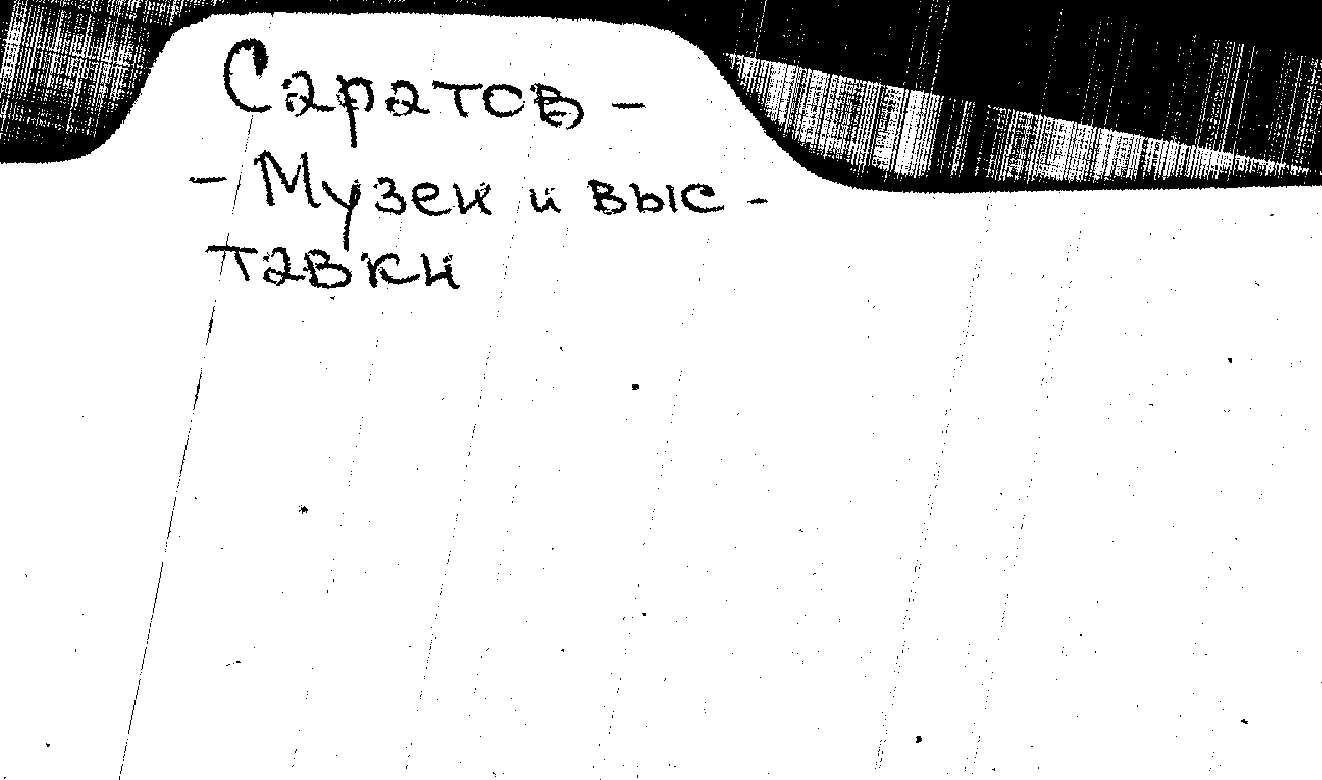 Саратов -
- Музеи и выс -
тавки